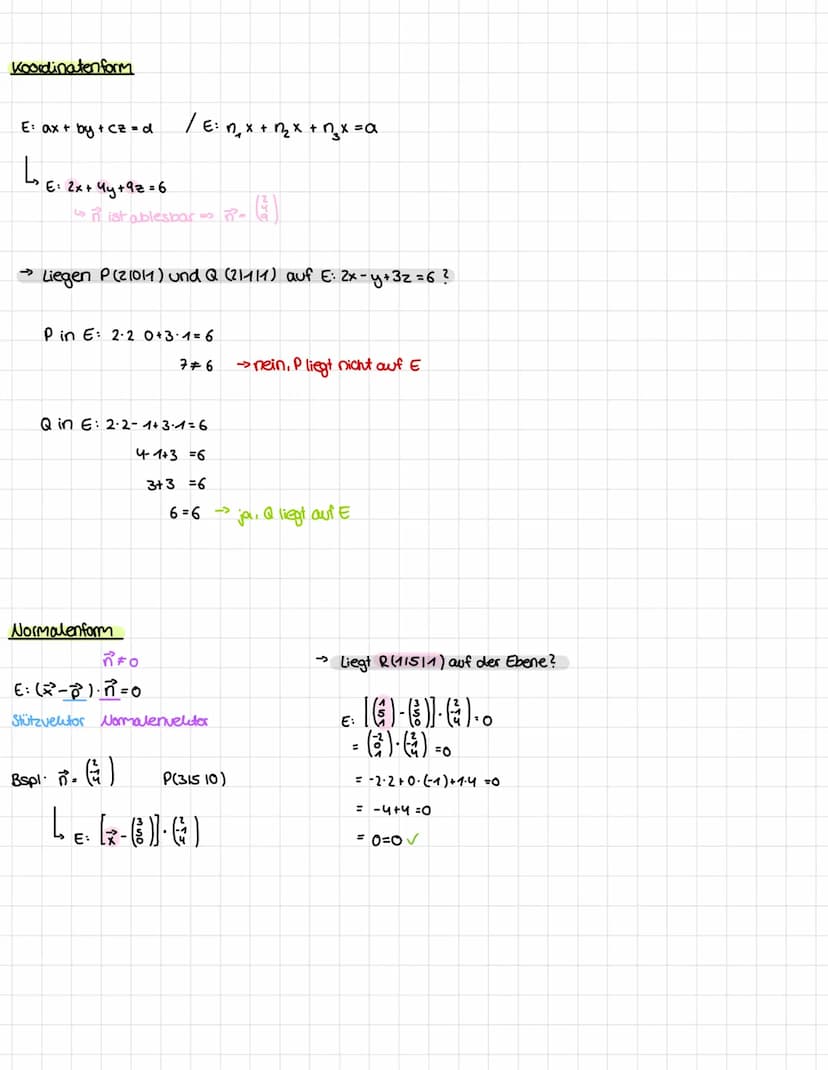 Koordinatenform
E: ax + by + cz = d / E: n₁x + n₂x + n₃x = a
↳ E: 2x + 4y + 9z = 6
↳ n⃗ ist ablesbar ⇒ n⃗ = (2 4 9)
→ Liegen P(2|0|1) und Q (2|1|1) auf E: 2x - y + 3z = 6 ?
P in E: 2·2 0+3·1 = 6
7 ≠ 6 → nein, P liegt nicht auf E
Q in E: 2·2 - 1 + 3·1 = 6
4-1+3 = 6
3+3 = 6
6 = 6 → ja, Q liegt auf E
Normalenform
n⃗ ≠ 0
E: (x⃗ - p⃗) · n⃗ = 0
Stützvektor Normalenvektor
Bspl. n⃗ = (2 -1 4) P(3|5|0)
↳ E: [x⃗ - (3 5 0)] · (2 -1 4)
→ Liegt R(1|5|1) auf der Ebene?
E: [(1 5 1) - (3 5 0)] · (2 -1 4) = 0
= (-2 0 1) · (2 -1 4) = 0
= -2·2 + 0·(-1) + 1·4 = 0
= -4+4 = 0
= 0=0 ✓